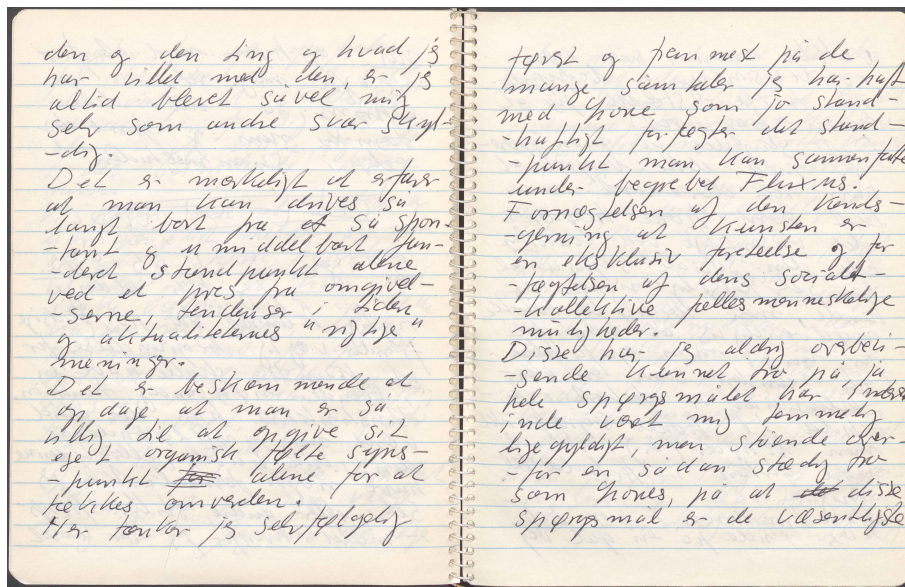 den og den ting og hvad jeg
har villet med den, er jeg
altid blevet såvel mig
selv som andre svar skyl-
-dig.
Det er mærkeligt at erfare
at man kan drives så
langt bort fra et så spon-
-tant og umiddelbart fun-
-deret standpunkt alene
ved et pres fra omgivel-
-serne, tendenser i tiden
og aktualiteternes "rigtige"
meninger.
Det er beskæmmende at
opdage, at man er så
villig til at opgive sit
eget organisk følte syns-
-punkt for alene for at
tækkes omverden.
Her tænker jeg selvfølgelig
først og fremmest på de
mange samtaler jeg har haft
med Tone som jo stand-
-haftigt forfægter det stand-
-punkt man kan sammenfatte
under begrebet Fluxus.
Fornægtelsen af den kends-
-gerning at kunsten er
en eksklusiv foreteelse og for
-fægtelsen af dens socialt-
-kollektive fællesmenneskelige
muligheder.
Disse har jeg aldrig overbevi-
-sende kunnet tro på, ja
hele spørgsmålet har inderst
inde været mig temmelig
ligegyldigt, men stående over-
-for en sådan stædig tro
som Tones, på at disse
spørgsmål er de væsentligste